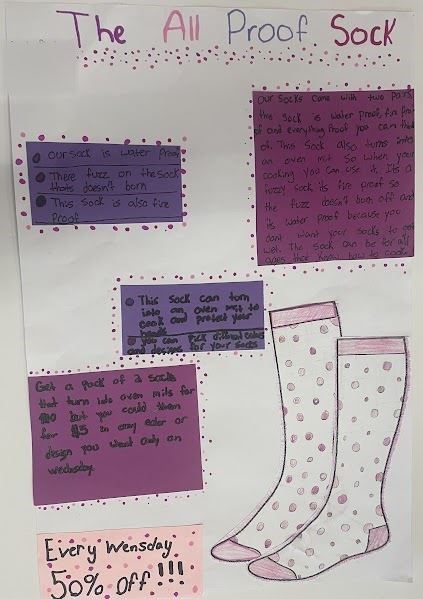 The All Proof Sock
Our socks come with two pairs,
the sock is water proof, fire proof
and everything proof you can think
of. This Sock also turns into
an oven mit So when your
cooking you can use it. Its a
fuzzy sock its fire proof so
the fuzz doesn't burn off and
its water proof because you
dont want your socks to get
wet. The sock can be for all
ages that know how to cook
Our Sock is water proof
There fuzz on the sock
thats doesn't born
This Sock is also fire
Proof
This Sock can turn
into an oven mit to
cook and protect your
hands
you can pick different colors
and designs for your socks
Get a pack of 2 socks
that turn into oven mits for
$10 but you could them
for $5 in any color or
design you want only on
wednsday
Every Wensday
50% off!!!